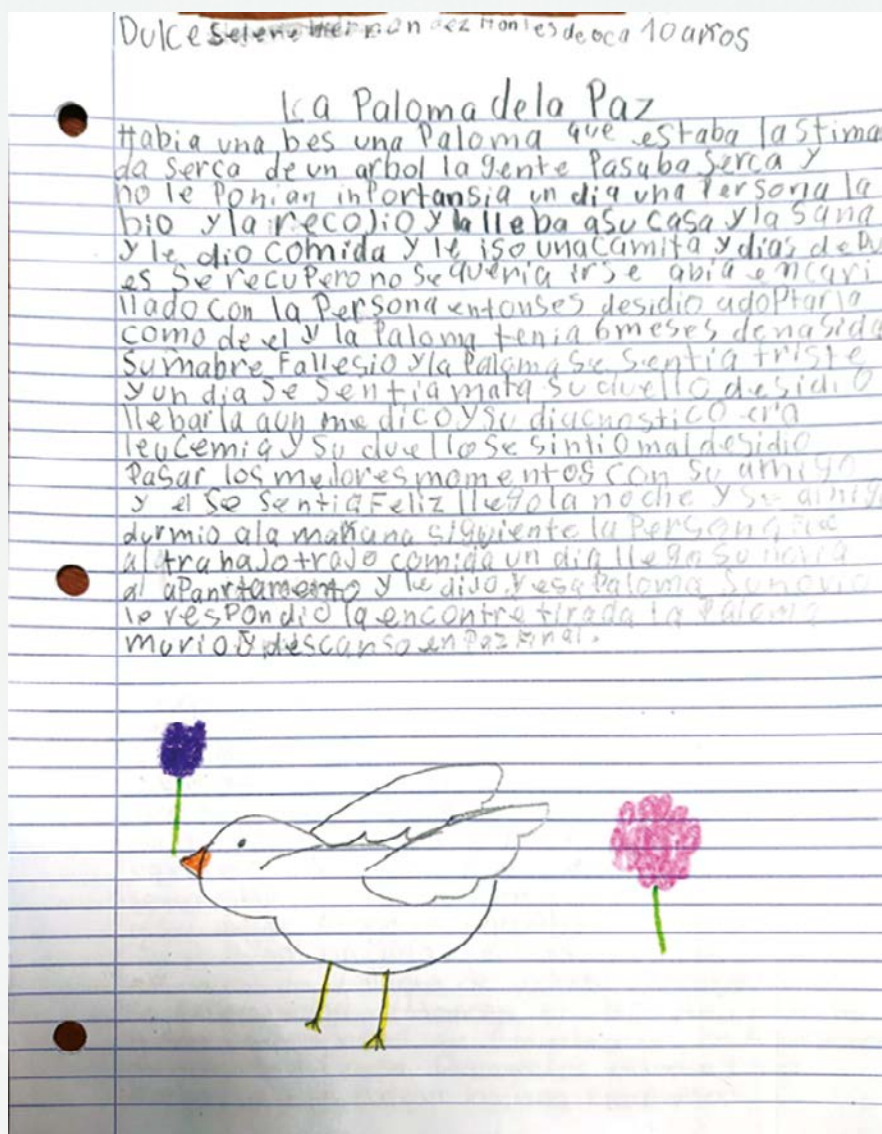 Dulce Selene Hernandez Montes de oca 10 años
La Paloma de la Paz
Habia una bes una Paloma que estaba lastima
da serca de un arbol la gente Pasaba serca y
no le Ponian inPortansia un dia una Persona la
bio y la recolio y la lleba a su casa y la sana
y le dio comida y le iso una camita y dias de Pu
es se recupero no se queria irse abia encari
llado con la Persona entonses desidio adoptarla
como de el y la Paloma tenia 6 meses de nasida
su mabre Fallesio y la Paloma se sentia triste
y un dia se sentia mala su duello desidio
llebarla a un medico y su diagnostico era
leucemia y su duello se sintio mal desidio
Pasar los mejores momentos con su amigo
y el se sentia Feliz llego la noche y su amigo
durmio a la mañana siguiente la Persona fue
al trabajo trajo comida un dia llego su novia
al aPanrtamento y le dijo y esa Paloma su novio
le respondio la encontre tirada la Paloma
murio y descanso en Paz Final.